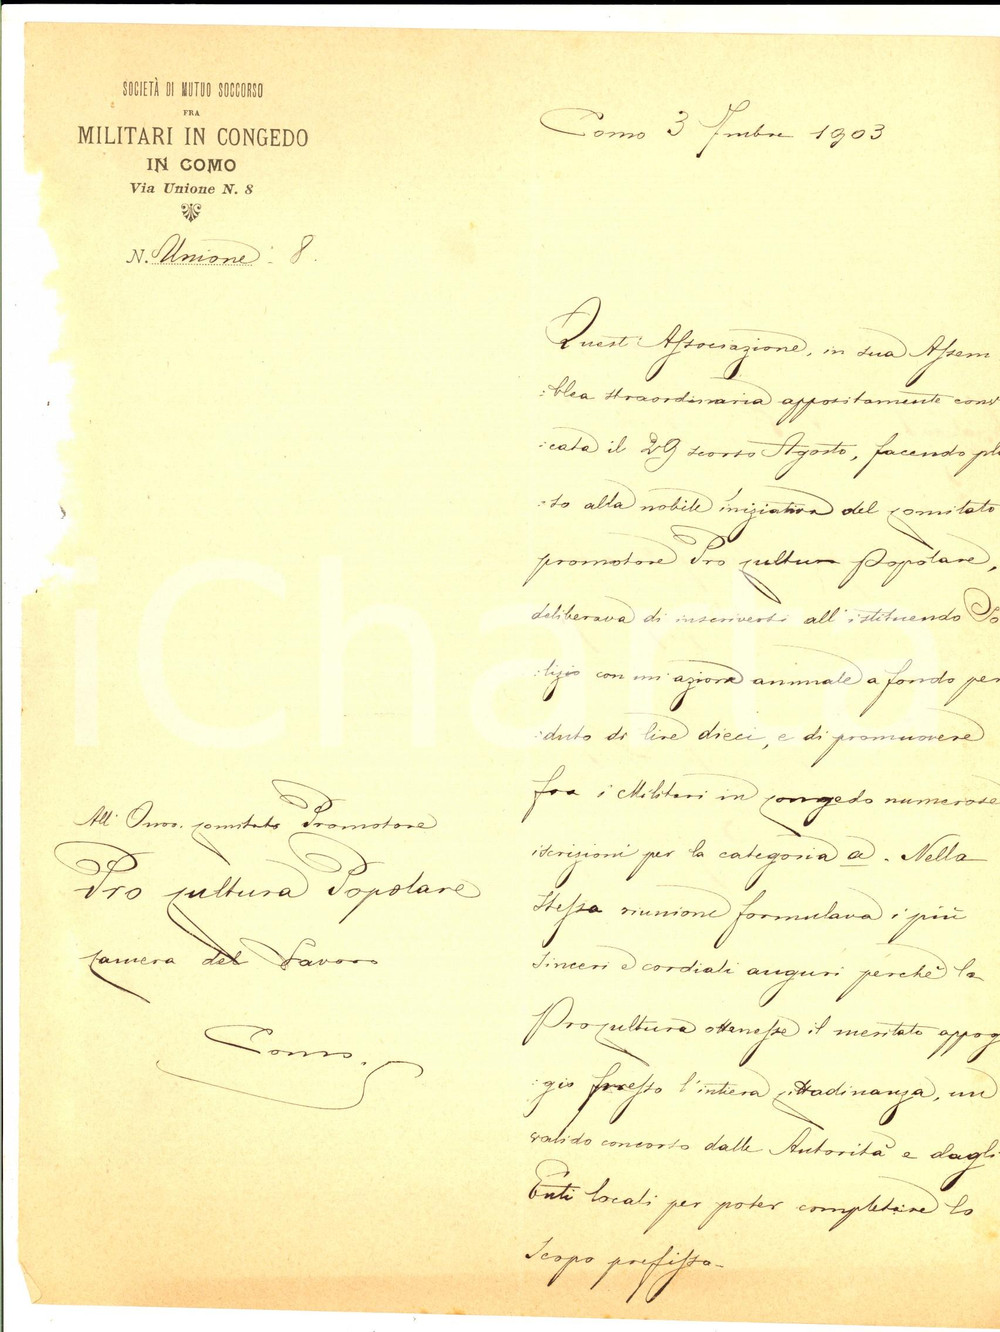 SOCIETÀ DI MUTUO SOCCORSO
FRA
MILITARI IN CONGEDO
IN COMO
Via Unione N. 8
N. Unione: 8.
Como 3 7mbre 1903
Quest'Associazione, in sua Assem
:blea straordinaria appositamente conv
:cata il 29 scorso Agosto, facendo pla
:so alla nobile iniziativa del comitato
promotore Pro cultura Popolare,
deliberava di inscriversi all'istituendo So
:lizio con un'azione annuale a fondo per
:duto di lire dieci, e di promuovere
fra i Militari in congedo numerose
iscrizioni per la categoria a. Nella
stessa riunione formulava i più
sinceri e cordiali auguri perchè la
Procultura ottenesse il meritato appog
:gio presso l'intiera cittadinanza, un
valido concorso dalle Autorità e dagli
Enti locali per poter completare lo
scopo prefisso.
All'Onor. comitato Promotore
Pro cultura Popolare
camera del Lavoro
Como.
iCharta